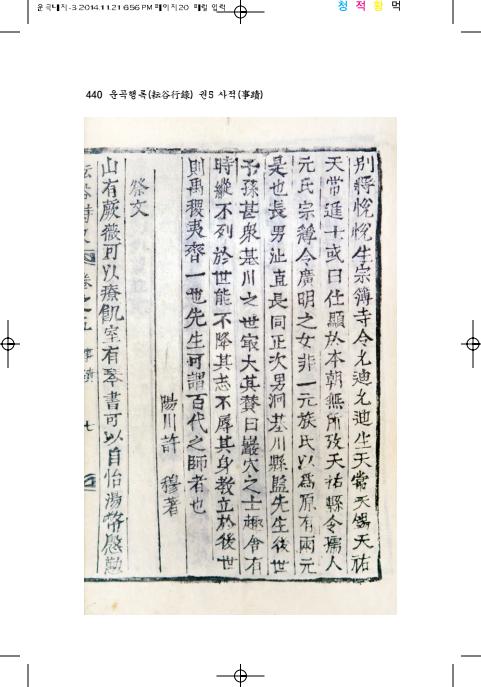 운곡행록(耘谷行錄) 권5 사적(事蹟)
440
청 적 황 먹
別將悅悅生宗簿寺令允迪允迪生天常天錫天祐
天常進士或曰仕顯於本朝無所攷天祐縣令孺人
元氏宗簿令廣明之女非一元族氏以爲原有兩元
是也長男沚直長同正次男洞基川縣監先生後世
子孫甚衆基川之世最大其贊曰巖穴之士趣舍有
時縱不列於世能不降其志不辱其身敎立於後世
則禹稷夷齊一也先生可謂百代之師者也
陽川許 穆著
祭文
山有蕨薇可以療飢室有琴書可以自怡湯幣慇懃
耘谷詩史 卷之五 事蹟 七